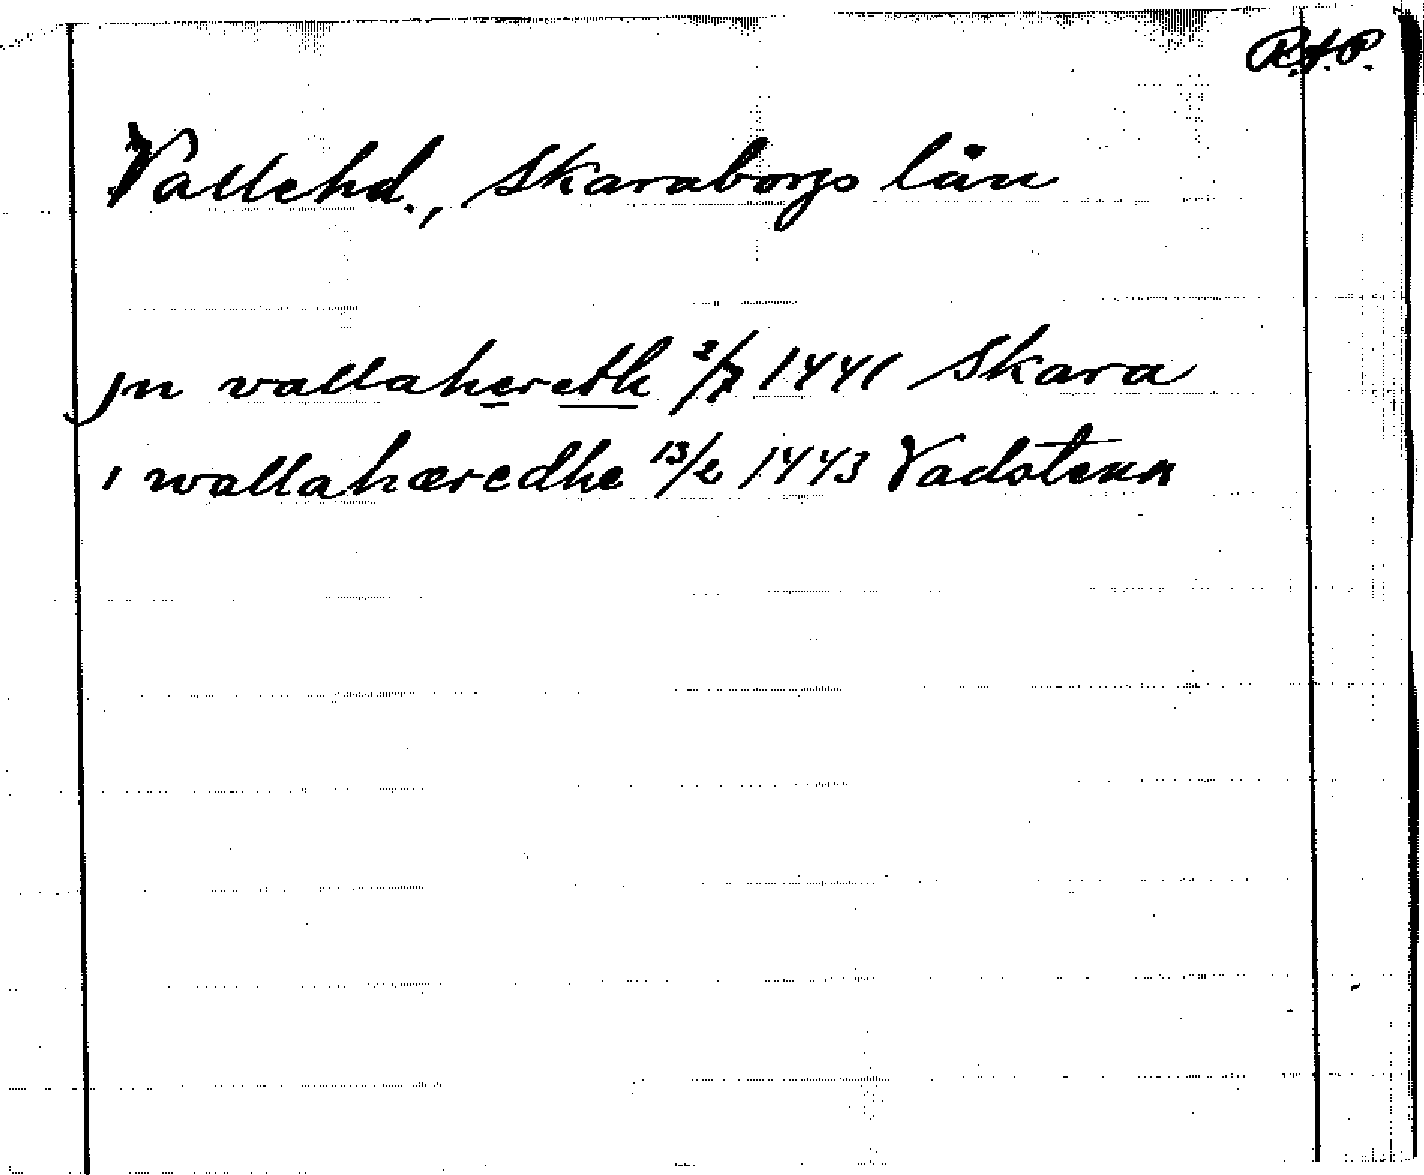 R.A.P.
Vallehd., Skaraborgs län
jn vallahereth 2/7 1441 Skara
i wallahæredhe 13/2 1443 Vadstena